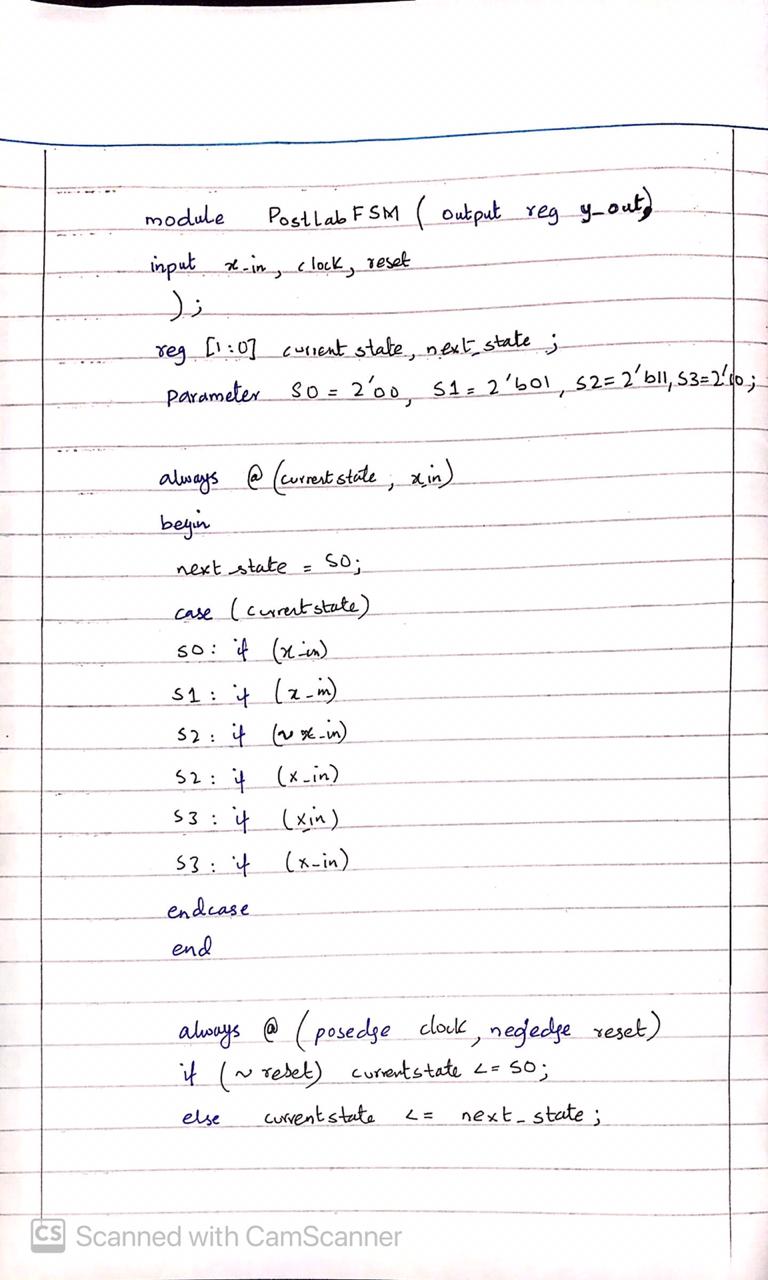 module PostLabFSM ( output reg y_out,
input x_in, clock, reset
);
reg [1:0] current state, next_state ;
Parameter S0 = 2'00, S1 = 2'b01, S2= 2'b11, S3=2'10;
always @ (current state, x_in)
begin
next_state = S0;
case (current state)
S0: if (x_in)
S1 : if (x_in)
S2 : if (~x_in)
S2 : if (x_in)
S3 : if (x_in)
S3 : if (x_in)
endcase
end
always @ (posedge clock, negedge reset)
if (~reset) current state <= S0;
else current state <= next_state ;
CS Scanned with CamScanner